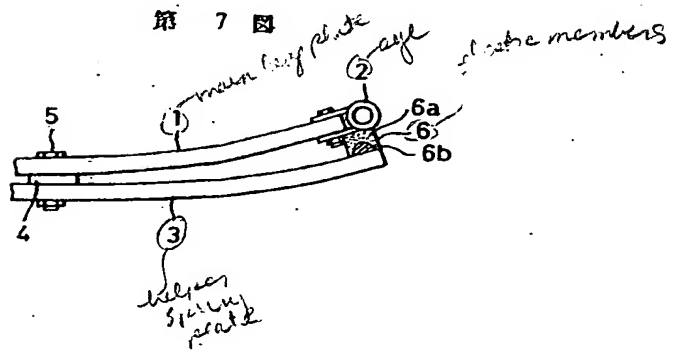 第 7 図
main leaf plate
2 eye
elastic members
5
1
6a
6
6b
4
3
helper
spring
plate